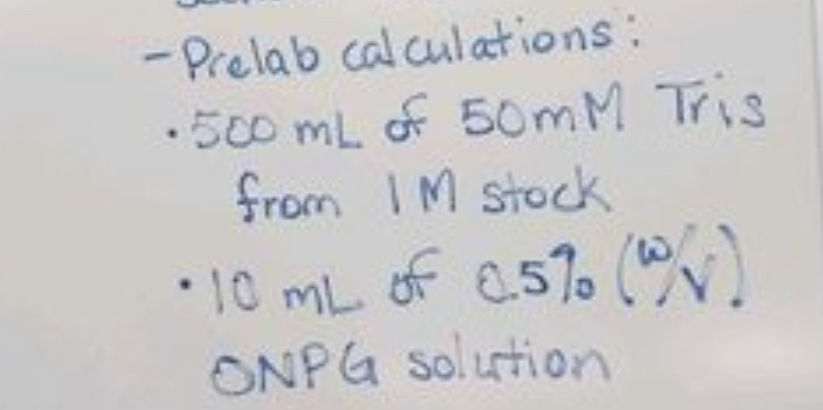 - Prelab calculations:
• 500 mL of 50mM Tris
from 1M stock
• 10 mL of 0.5% (w/v)
ONPG solution